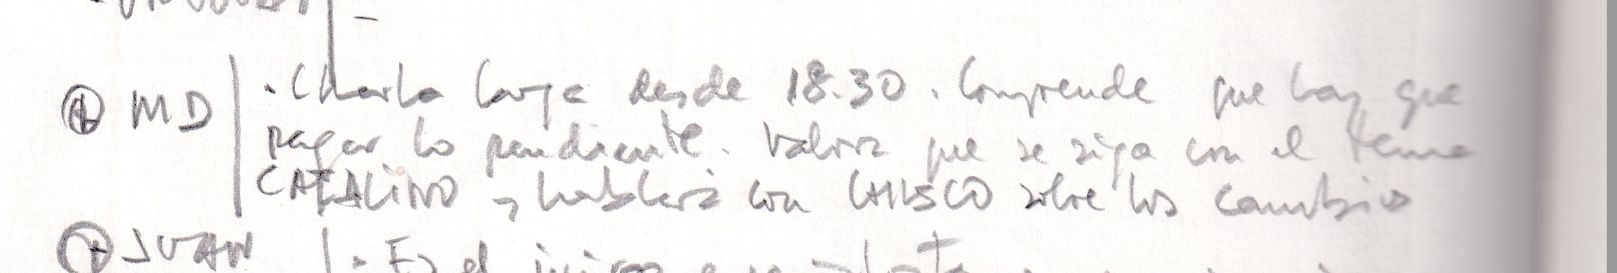 ⊕ MD | · Charla larga desde 18.30. Comprende que hay que
pagar lo pendiente. Valora que se siga con el tema
CATALINO → hablará con sobre los cambios
⊕ JUAN | · Es el